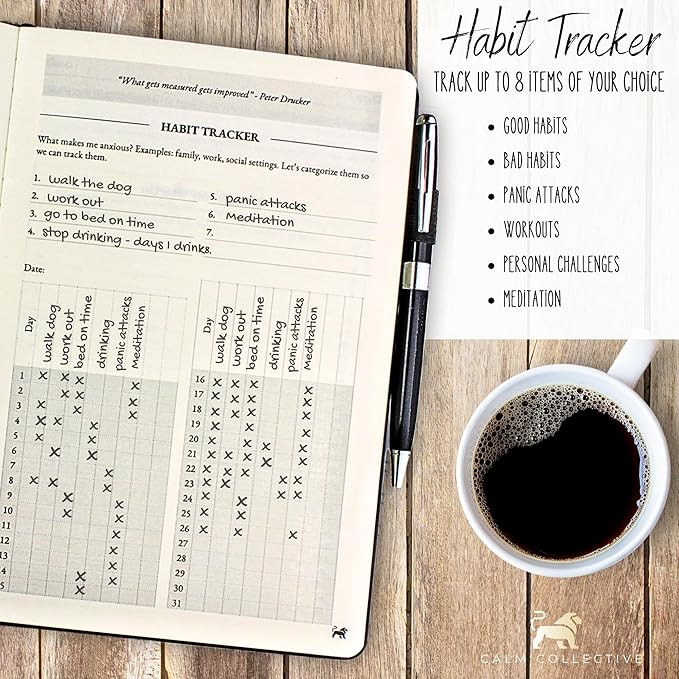 "What gets measured gets improved" - Peter Drucker
HABIT TRACKER
What makes me anxious? Examples: family, work, social settings. Let's categorize them so
we can track them.
1. walk the dog
2. work out
3. go to bed on time
4. stop drinking - days I drinks.
5. panic attacks
6. Meditation
7.
Date:
Day
walk dog
work out
bed on time
drinking
panic attacks
Meditation
1
2
3
4
5
6
7
8
9
10
11
Day
walk dog
work out
bed on time
drinking
panic attacks
Meditation
16
17
18
19
20
21
22
23
24
25
26
27
28
29
30
31
Habit Tracker
TRACK UP TO 8 ITEMS OF YOUR CHOICE
• GOOD HABITS
• BAD HABITS
• PANIC ATTACKS
• WORKOUTS
• PERSONAL CHALLENGES
• MEDITATION
CALM COLLECTIVE